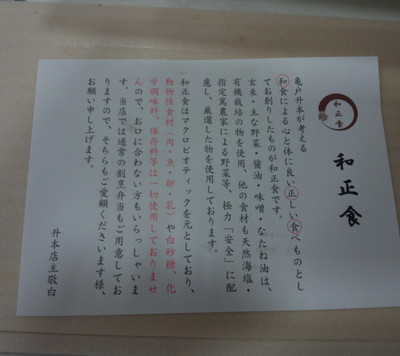 和正食
和正食
亀戸升本が考える
和食による心と体に良い正しい食べものとし
てお創りしたものが和正食です。
玄米・主な野菜・醤油・味噌・なたね油は、
有機栽培の物を使用、他の食材も天然海塩・
指定篤農家による野菜等、極力「安全」に配
慮し、厳選した物を使用しております。
和正食はマクロビオティックを元としており、
動物性食材(肉・魚・卵・乳)や白砂糖、化
学調味料、保存料等は一切使用しておりませ
んので、お口に合わない方もいらっしゃいま
す。当店では通常の割烹弁当もご用意してお
りますので、そちらもご愛顧くださいます様、
お願い申し上げます。
升本店主敬白